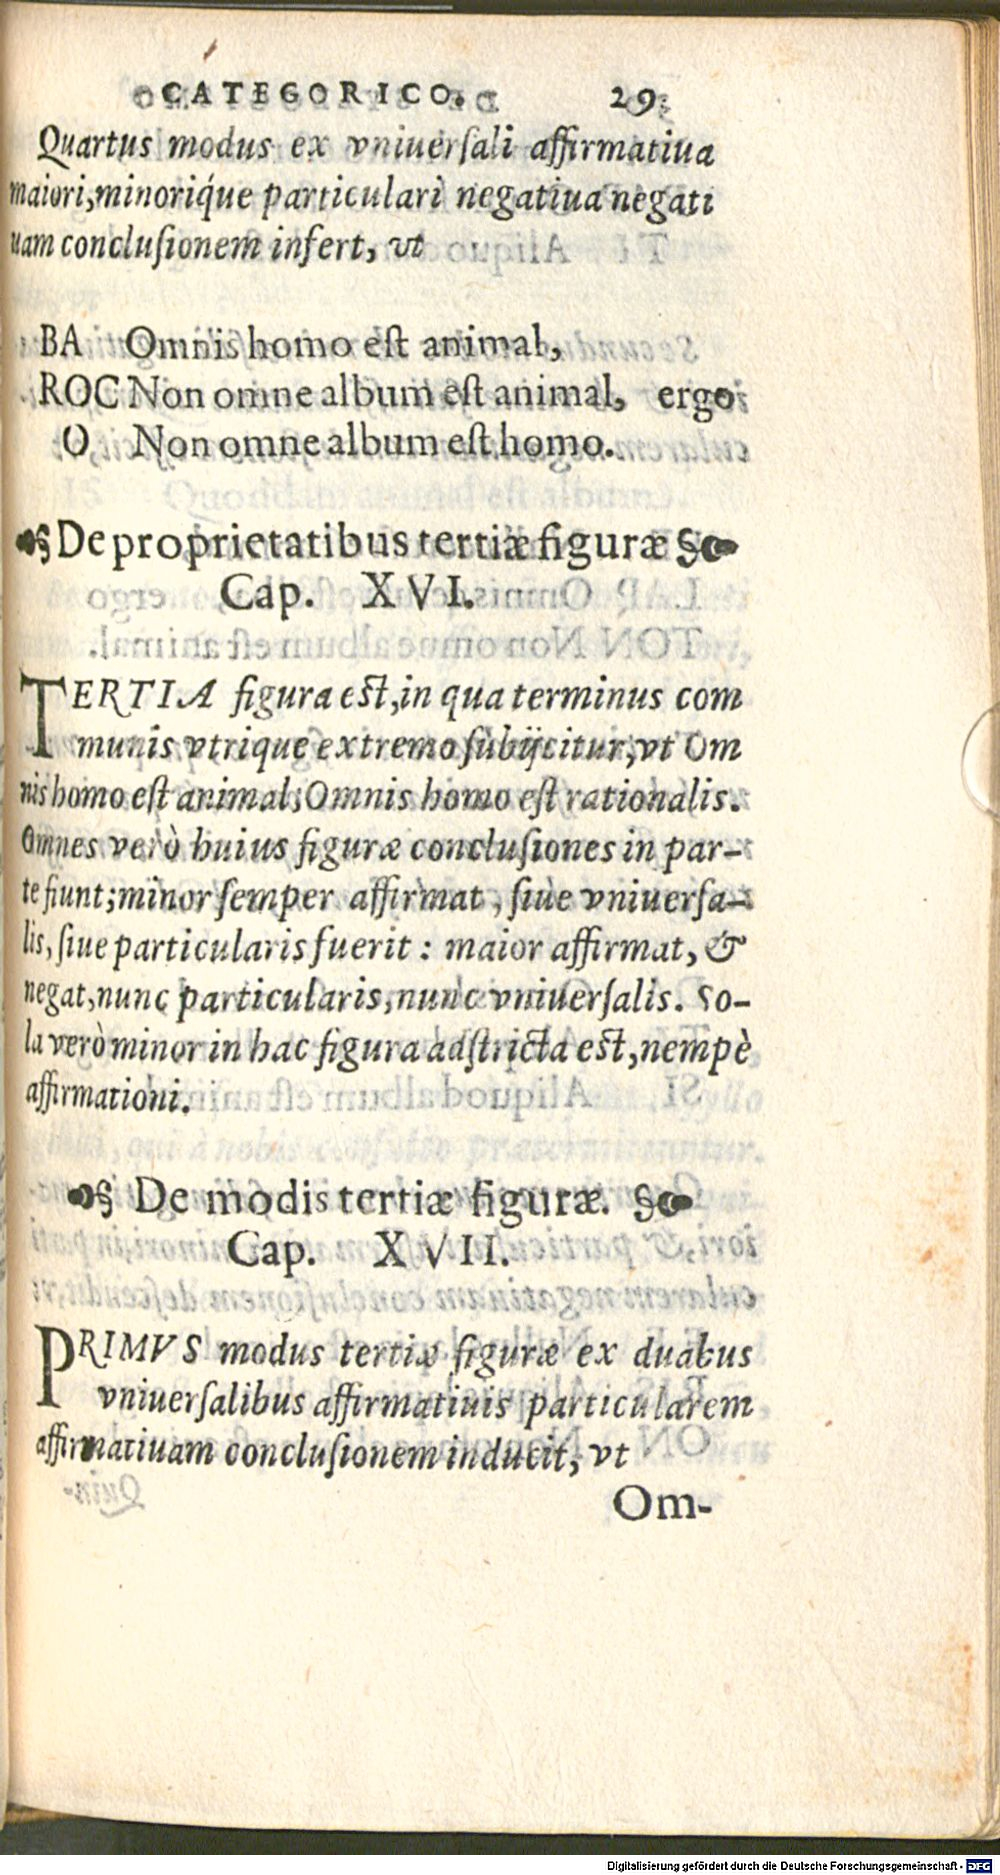 CATEGORICO. 29
Quartus modus ex vniuerſali affirmatiua
maiori, minoriq́ue particulari negatiua negati
uam concluſionem infert, vt
BA Omnis homo eſt animal,
ROC Non omne album eſt animal, ergo
O Non omne album eſt homo.
De proprietatibus tertiæ figuræ
Cap. XVI.
TERTIA figura eſt, in qua terminus com
munis vtrique extremo ſubijcitur, vt Om
nis homo eſt animal; Omnis homo eſt rationalis.
Omnes verò huius figuræ concluſiones in par-
te fiunt; minor ſemper affirmat, ſiue vniuerſa-
lis, ſiue particularis fuerit: maior affirmat, &
negat, nunc particularis, nunc vniuerſalis. So-
la verò minor in hac figura adſtricta eſt, nempè
affirmationi.
De modis tertiæ figuræ.
Cap. XVII.
PRIMVS modus tertiæ figuræ ex duabus
vniuerſalibus affirmatiuis particularem
affirmatiuam concluſionem inducit, vt
Om-
Digitalisierung gefördert durch die Deutsche Forschungsgemeinschaft - DFG